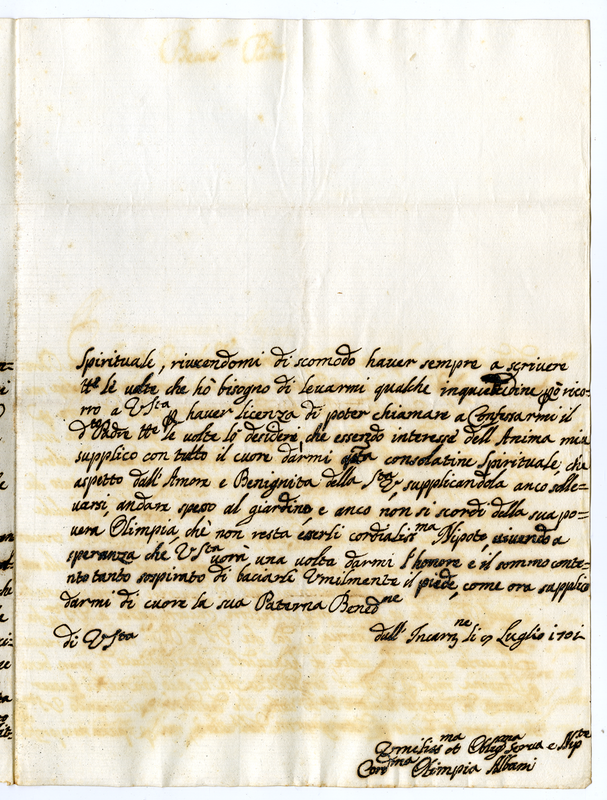 Spirituale, riuscendomi di scomodo haver sempre a scrivere
tt.e le volte che hò bisogno di levarmi qualche inquietidine però rico-
rro a V S.ta p haver licenza di poter chiamare a Confessarmi il
d.to Padre tt.e le volte lo desideri, che essendo interesse dell'Anima mia
supplico con tutto il cuore darmi q.sta consolatine Spirituale che
aspetto dall'Amore e Benignita della S.ta V, supplicandola anco solle-
varsi, andare spesso al giardino, e anco non si scordi della sua po-
vera Olimpia, chè non resta eserli cordialis.ma Nipote, vivendo a
speranza che V S.ta vorrà una volta darmi l'honore e il sommo conte-
nto tanto sospirato di baciarli Umilmente il piede, come ora supplico
darmi di cuore la sua Paterna Bened.ne
di V S.ta
dall' Incarn.ne li 7 Luglio 1701
Umiliss.ma et Oblig.ma Serva e Nip.te
Cord.ma Olimpia Albani